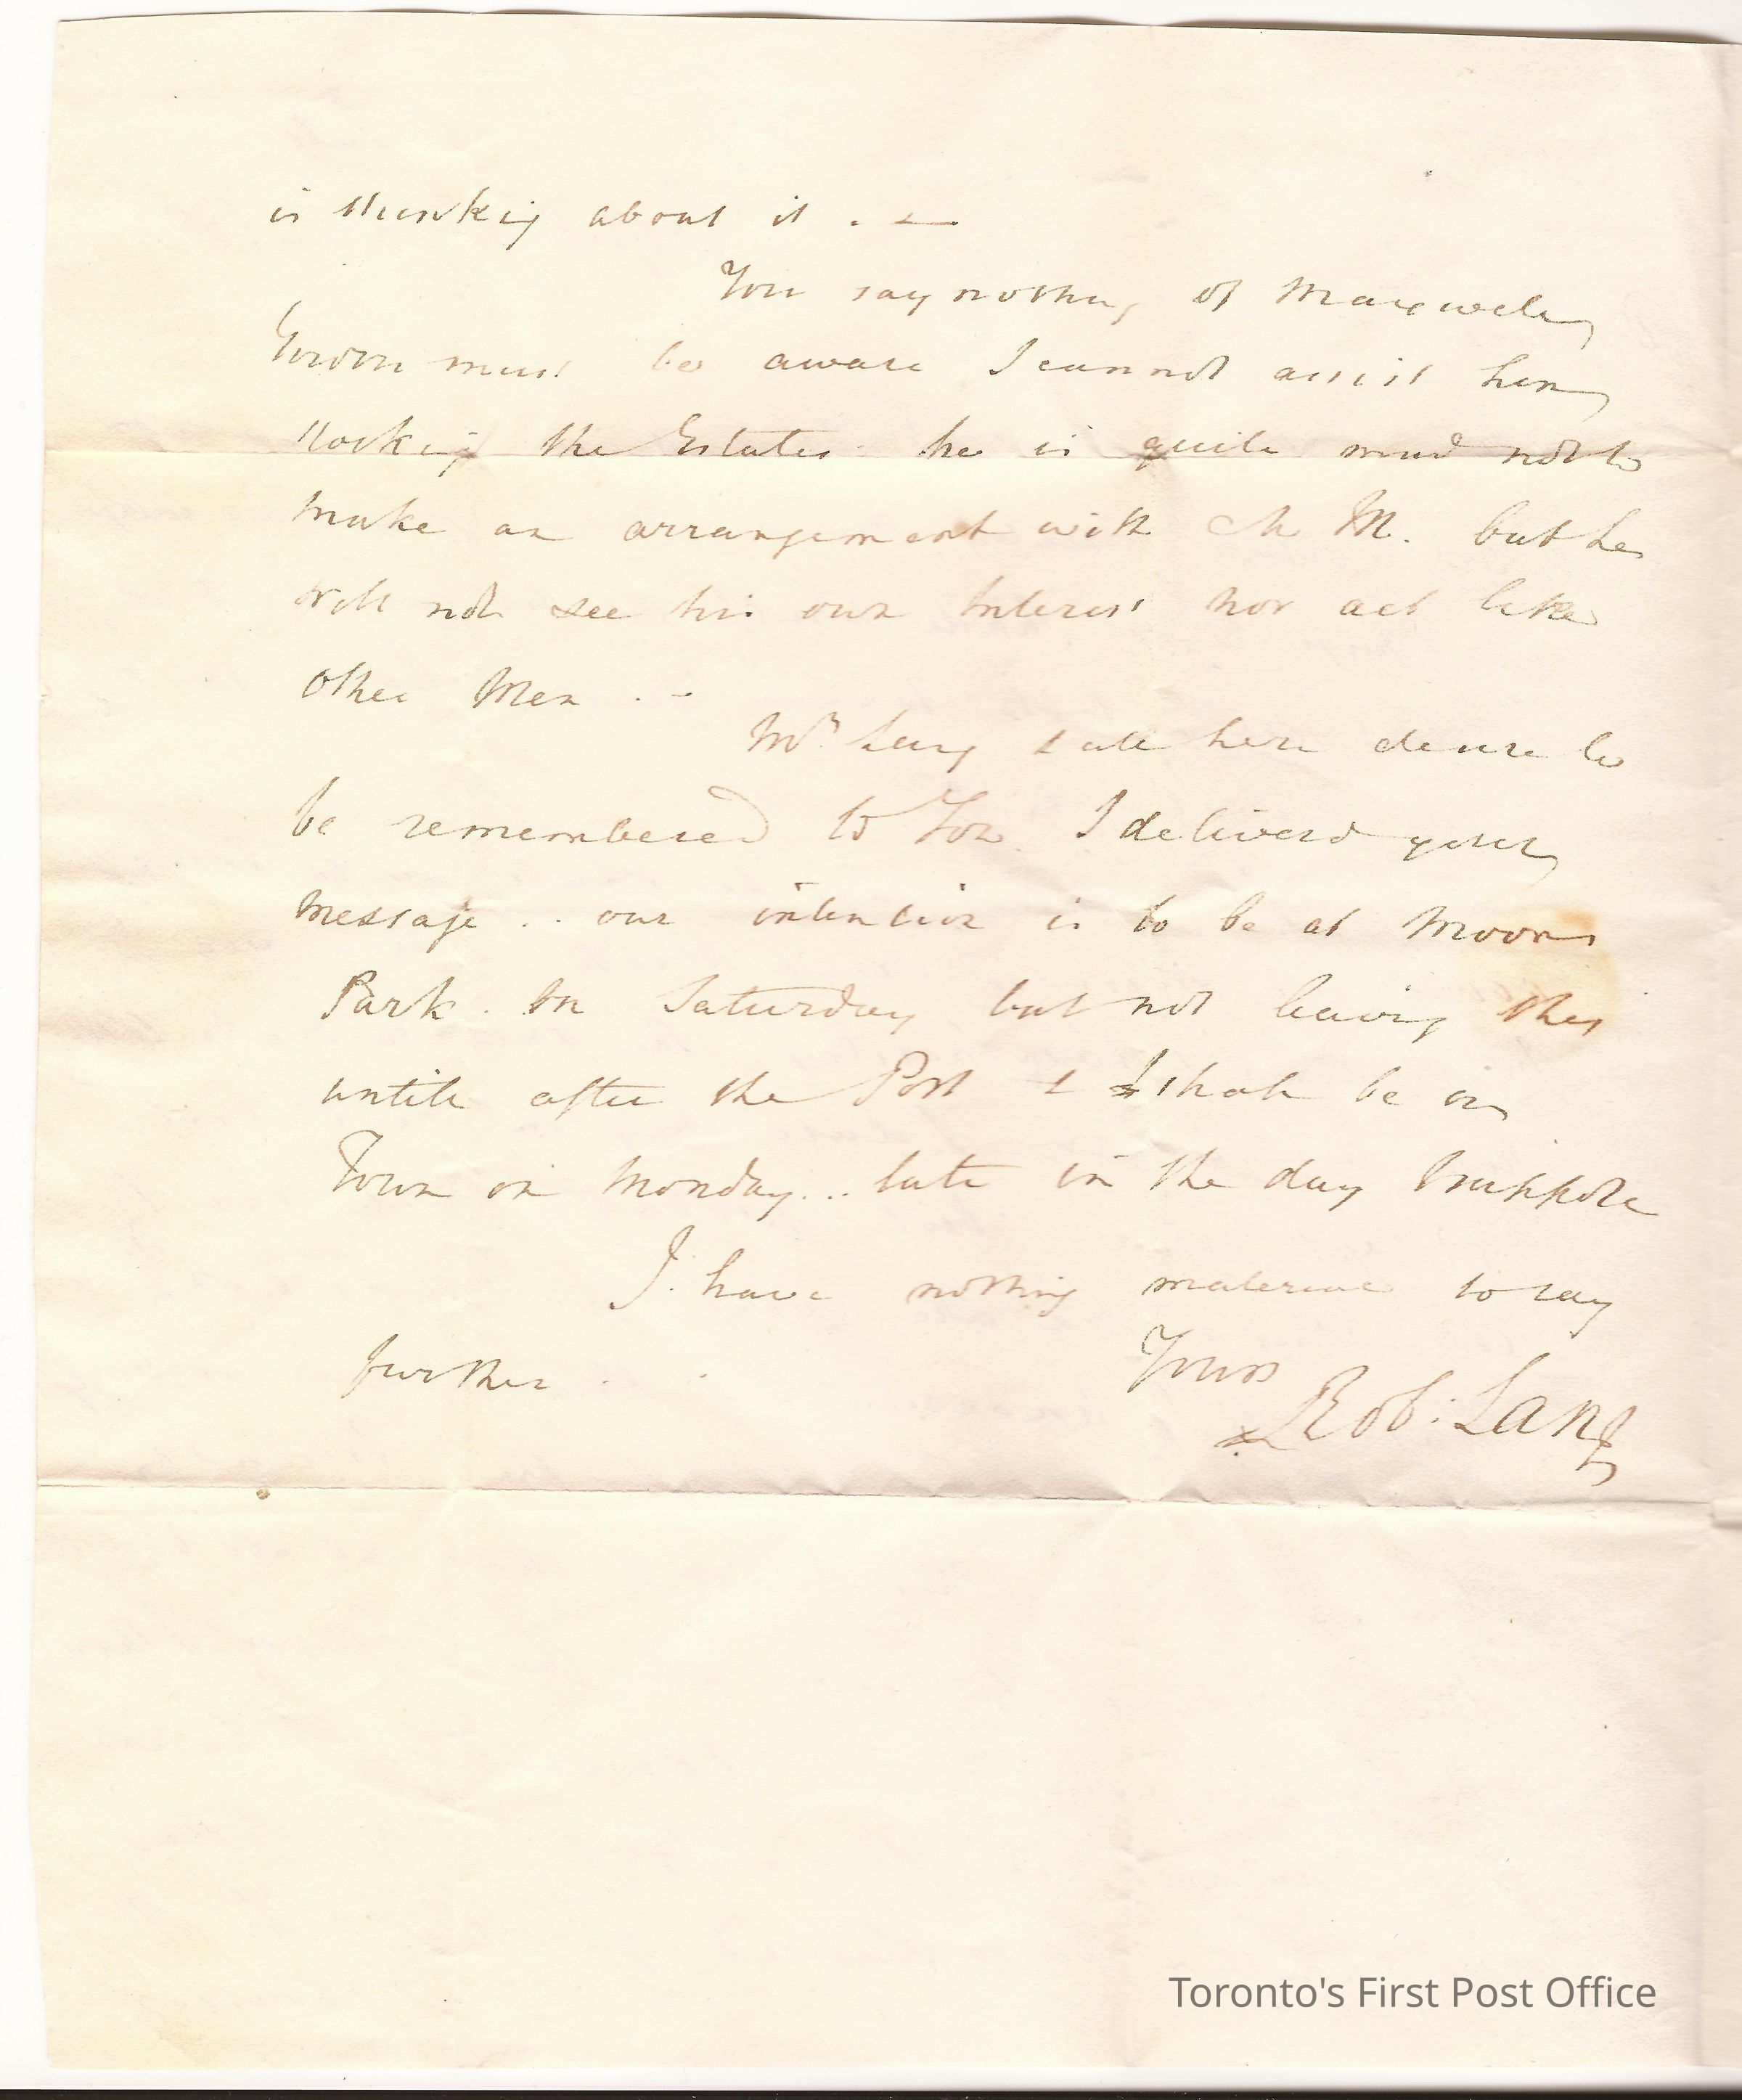 is thinking about it . —
You say nothing of Maxwell
must be aware I cannot assist him
the Estates he is quite mad not to
make an arrangement with M. but he
will not see his own Interest nor act like
other Men . -
Mrs Lang & all here desire to
be remembered to You. I deliverd your
message . . our intention is to be at Moor
Park . on Saturday but not leaving this
until after the Post & I shall be in
Town on Monday... late in the day I suppose
I have nothing material to say
further . .
Yours
Rob: Lang
Toronto's First Post Office